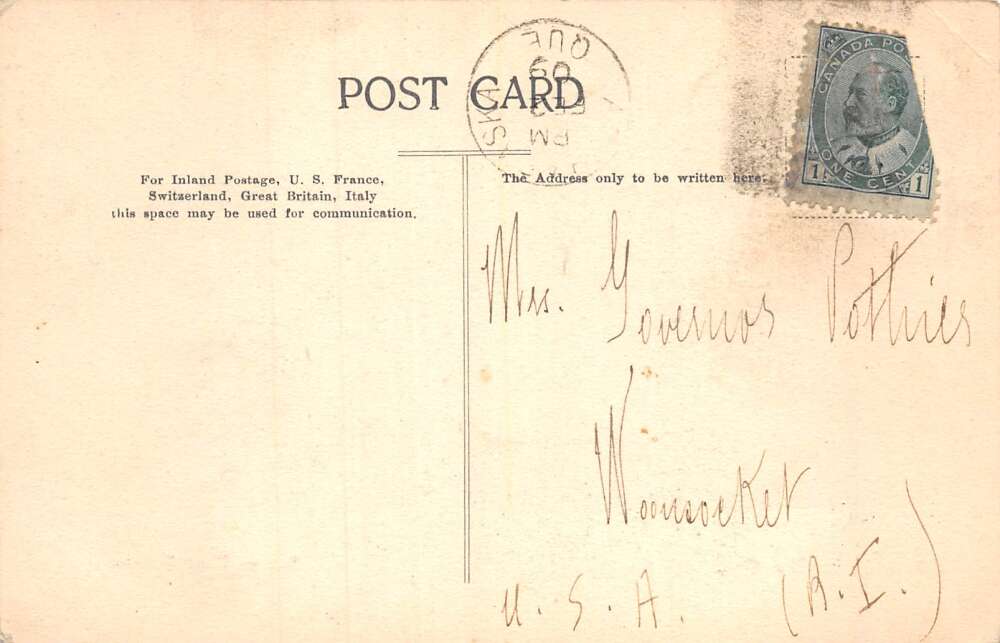 POST CARD
QUE
09
PM
For Inland Postage, U. S. France,
Switzerland, Great Britain, Italy
this space may be used for communication.
The Address only to be written here.
CANADA PO
ONE CENT
1 1
Mrs. Governor Pothier
Woonsocket
U. S. A. (R. I.)